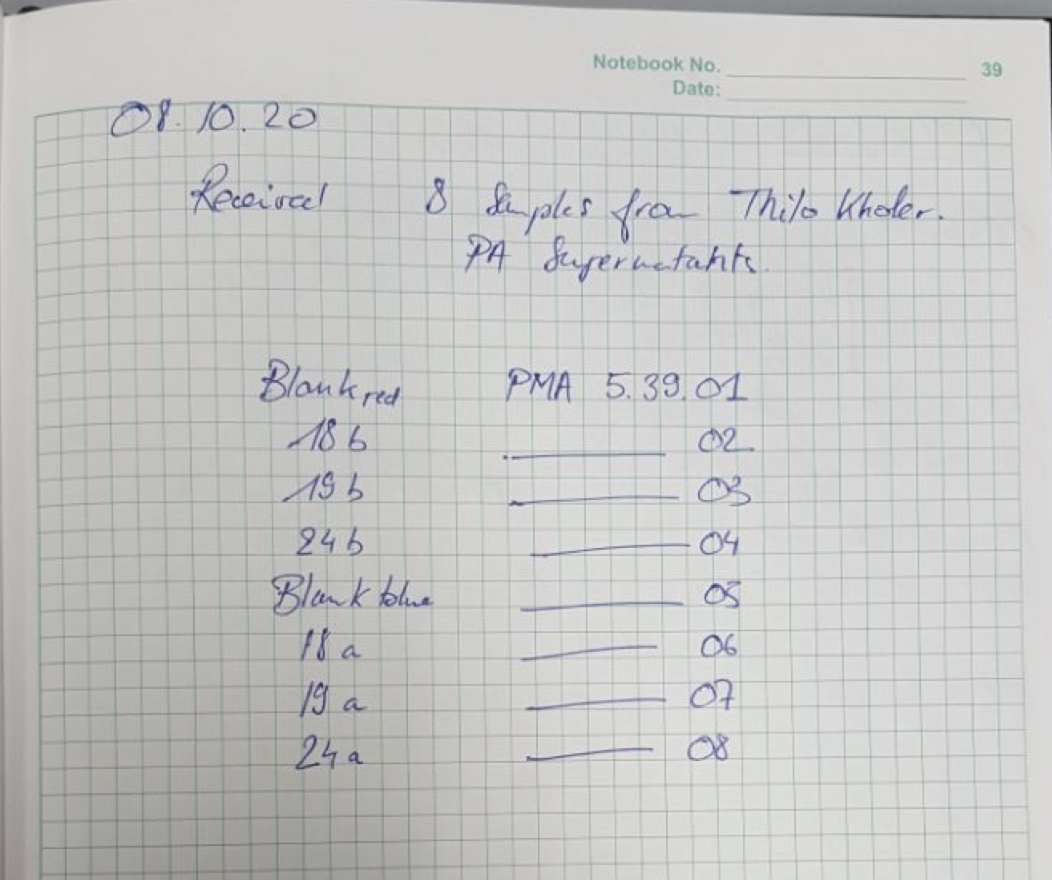 Notebook No. 39
Date:
08.10.20
Received 8 Samples from Thilo Kholer.
PA Supernatants.
Blank red PMA 5.39.01
18b 02
19b 03
24b 04
Blank blue 05
18a 06
19a 07
24a 08